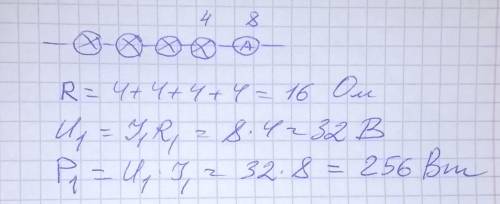 4 8
A
R = 4 + 4 + 4 + 4 = 16 Ом
U₁ = I₁R₁ = 8 · 4 = 32 В
P₁ = U₁ · I₁ = 32 · 8 = 256 Вт